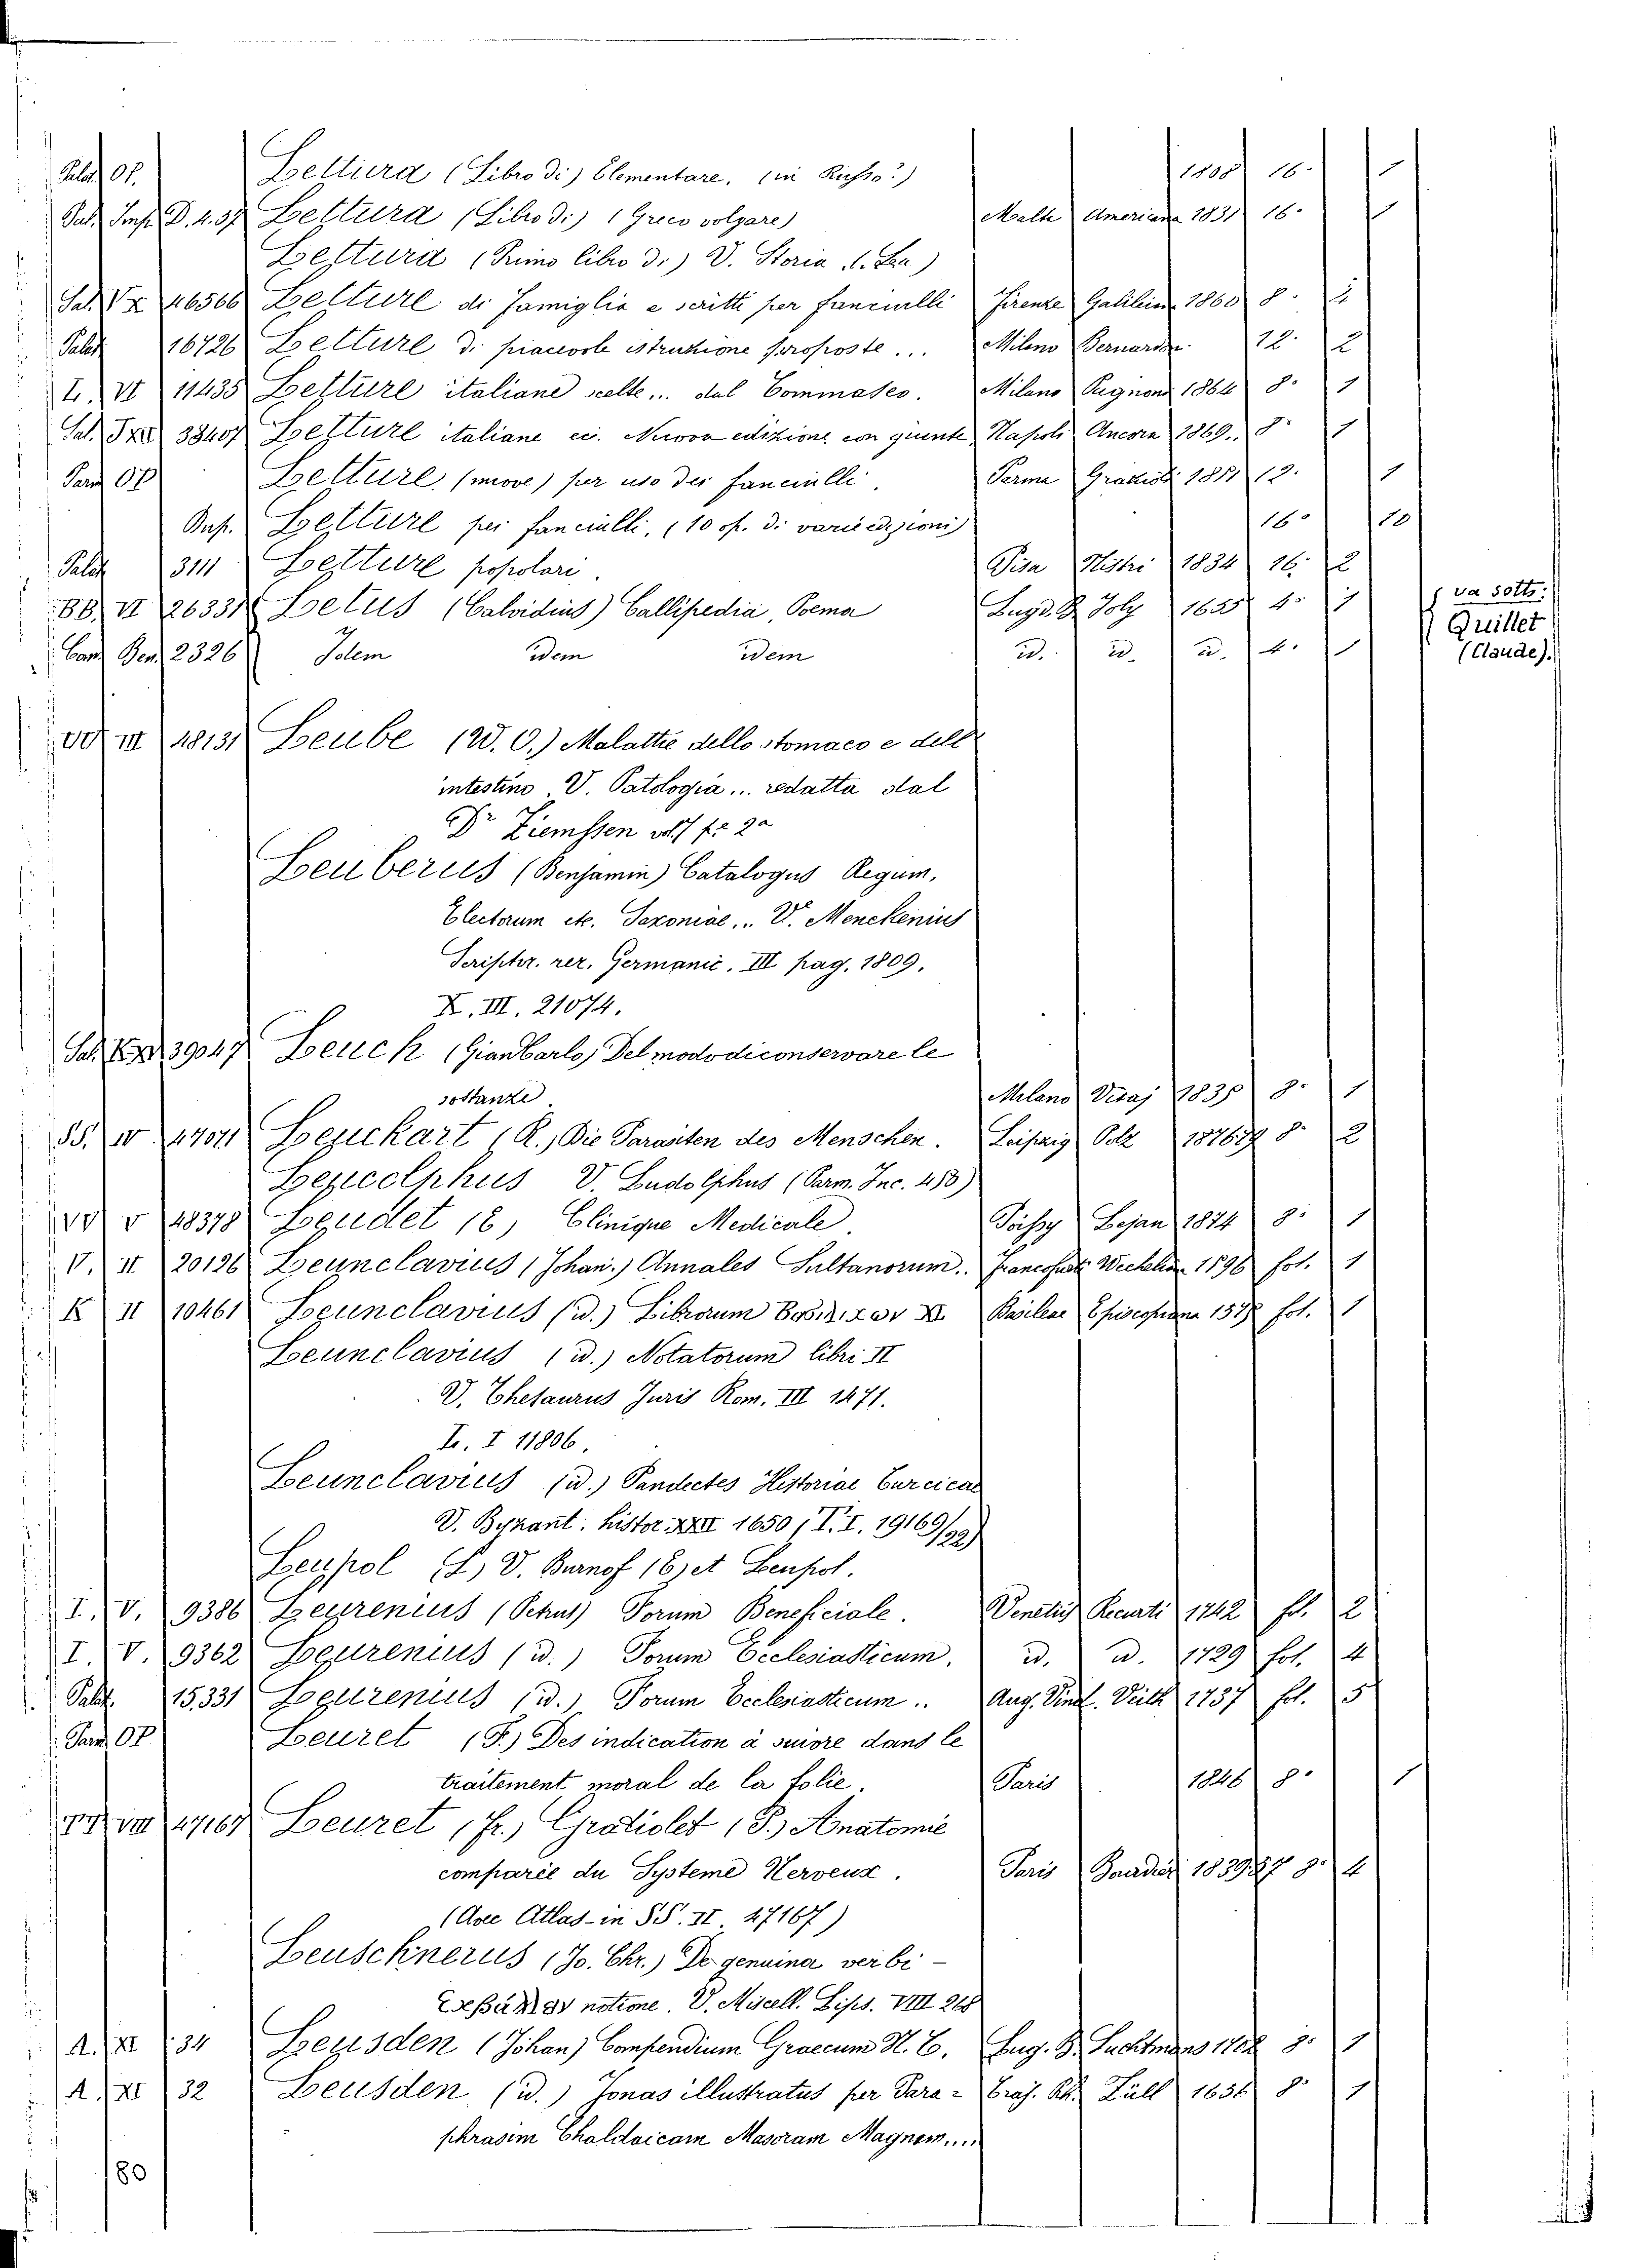 Palat. OP. Lettura (Libro di) Elementare. (in Russo?) 1808 16. 1
Pal. Imp. D. 4. 37 Lettura (Libro di) (Greco volgare) Malta Americana 1831 16. 1
Lettura (Primo libro di) V. Storia (La)
Sal. V 46566 Letture di famiglia e scritti per fanciulli Firenze Galileiana 1860 8. 2
Palat. 16726 Letture di piacevole istruzione proposte... Milano Bernardoni 12. 2
L. VI 11435 Letture italiane scelte... dal Tommaseo. Milano Rejnond 1864 8. 1
Sal. 38407 Letture italiane ecc. Nuova edizione con giunte Napoli Ancora 1869. 8. 1
Parm OP Letture (nuove) per uso dei fanciulli. Parma Grazioli 1851 12. 1
Letture per fanciulli, (10 op. di varie edizioni) 16. 10
Palat 3111 Letture popolari. Pisa Nistri 1834 16. 2
BB. VI 26331 Letus (Calvidius) Callipedia, Poema Lugd. B. Joly 1655 4. 1
va sotto:
Quillet
(Claude).
Ben. 2326 Idem idem idem id. id. id. 4. 1
III 48131 Leube (W. O.) Malattie dello stomaco e dell'
intestino. V. Patologia... redatta dal
Dr Ziemssen vol 7 pe 2a
Leuberus (Benjamin) Catalogus Regum,
Electorum etc. Saxoniae... V. Menckenius
Scriptor. rer. Germanic. III pag. 1809.
X. III. 21074.
Sal. 39047 Leuck (Gian Carlo) Del modo di conservare le
sostanze. Milano Visaj 1830 8. 1
SS. IV 47071 Leuckart (R.) Die Parasiten des Menschen. Leipzig 1876 79 8. 2
Leucolphus V. Ludolphus (Parm. Inc. 453)
V 48378 Leudet (E) Clinique Medicale. Poissy Lejan 1874 8. 1
V. II 20126 Leunclavius (Johan.) Annales Sultanorum. Francofurti Wechelian. 1596 fol. 1
K II 10461 Leunclavius (id.) Librorum LX Basileae Episcopiana 1575 fol. 1
Leunclavius (id.) Notatorum libri II
V. Thesaurus Juris Rom. III 1471.
L. I 11806.
Leunclavius (id.) Pandectes Historiae Turcicae
V. Byzant. histor. XXII 1650 (T. I. 19169/92)
Leupol (L) V. Burnof (E) et Leupol.
I. V. 9386 Leurenius (Petrus) Forum Beneficiale. Venetiis Recurti 1742 fol. 2
I. V. 9362 Leurenius (id.) Forum Ecclesiasticum. id. id. 1729 fol. 4
Palat. 15331 Leurenius (id.) Forum Ecclesiasticum.. Aug. Vind. Veith 1737 fol. 5
Parm OP Leuret (F.) Des indication à suivre dans le
traitement moral de la folie. Paris 1846 8. 1
VIII 47167 Leuret (Fr.) Gratiolet (P.) Anatomie
comparée du Systeme Nerveux. Paris 1839 57 8. 4
(Avec Atlas - in SS. II. 47167)
Leuschnerus (Jo. Chr.) De genuina verbi -
notione. V. Miscell. Lips. VIII 268
A. XI 34 Leusden (Johan) Compendium Graecum N. T. Lug. B. Luchtmans 8. 1
A. XI 32 Leusden (id.) Jonas illustratus per Para= Traj. Rh. 1656 8. 1
phrasim Chaldaicam Masoram Magnam....
180